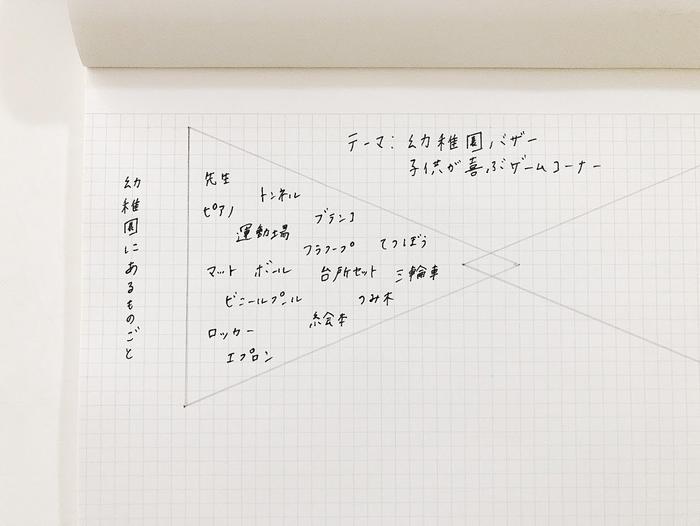 テーマ：幼稚園バザー
子供が喜ぶゲームコーナー
幼稚園にあるものごと
先生
トンネル
ピアノ
ブランコ
運動場
フラフープ
てつぼう
マット ボール 台所セット 三輪車
ビニールプール
つみ木
絵本
ロッカー
エプロン